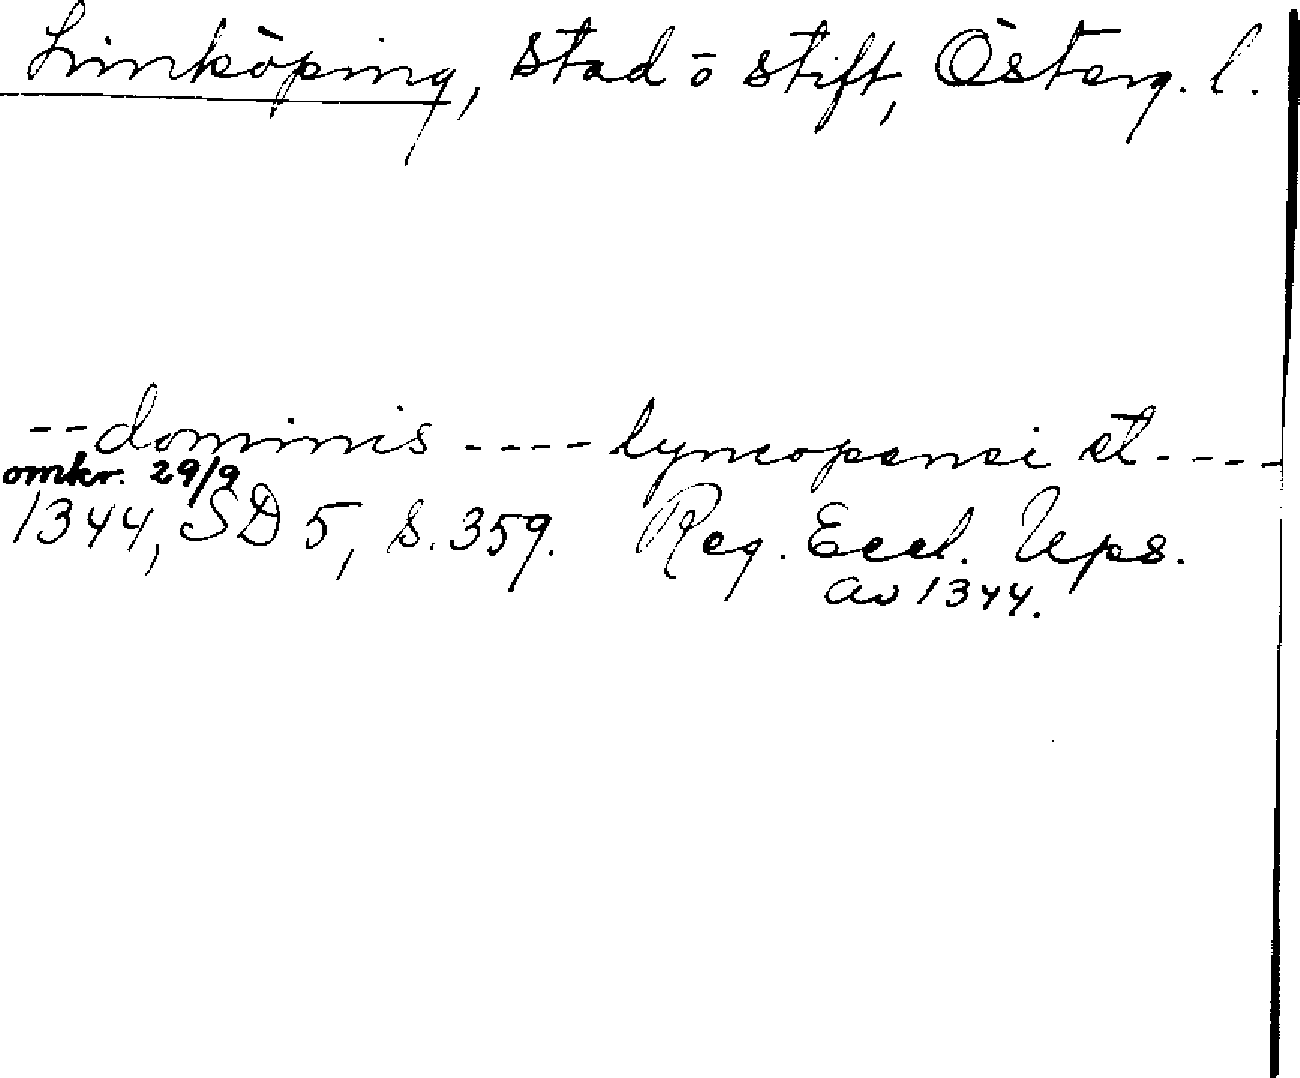 Linköping, stad o stift, Österg. l.
-- dominis ---- lyncopensi et ----
omkr. 29/9
1344, SD 5, s. 359. Reg. Eccl. Ups.
av 1344.